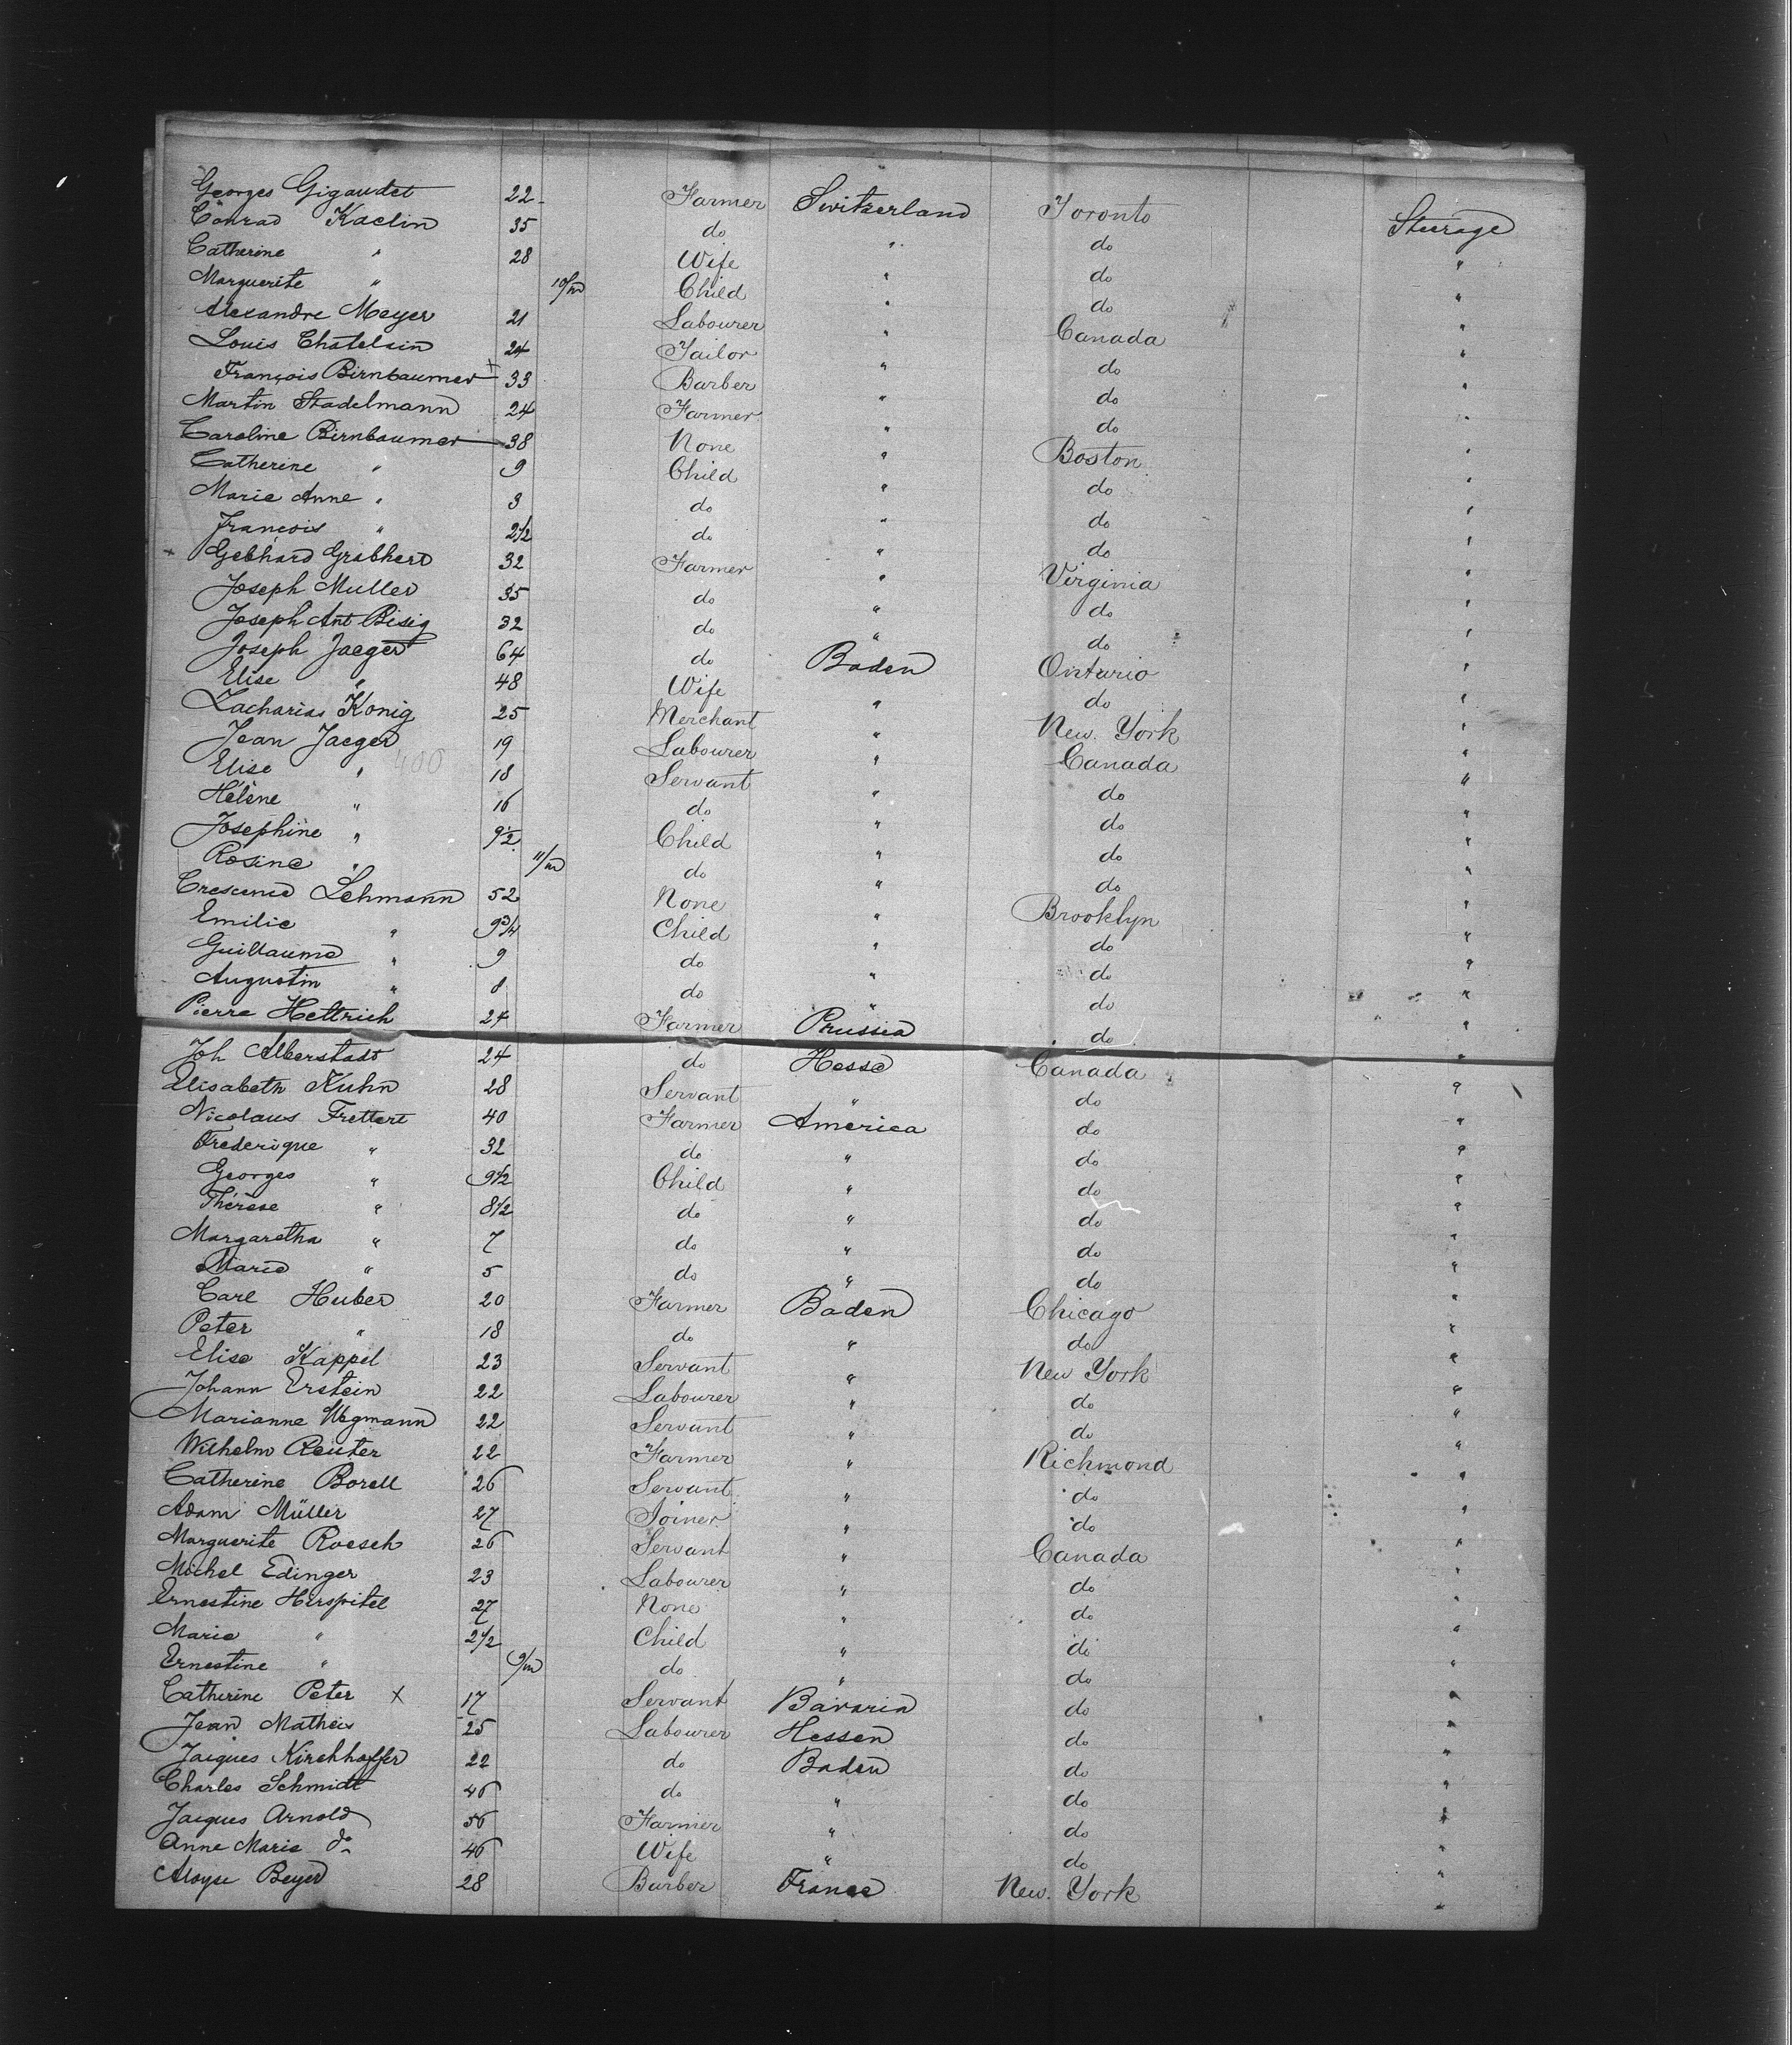 Georges Gigaudet 22 Farmer Switzerland Toronto Steerage
Conrad Kaelin 35 do " do "
Catherine " 28 Wife " do "
Marguerite " 10/m Child " do "
Alexandre Meyer 21 Labourer " Canada "
Louis Chatelain 24 Tailor " do "
François Birnbaumer + 33 Barber " do "
Martin Stadelmann 24 Farmer " do "
Caroline Birnbaumer 38 None " Boston "
Catherine " 9 Child " do "
Marie Anne " 3 do " do "
François " 2 1/2 do " do "
+ Gebhard Grabherd 32 Farmer " Virginia "
Joseph Muller 35 do " do "
Joseph Ant Bisig 32 do " do "
Joseph Jaeger 64 do Baden Ontario "
Elise " 48 Wife " do "
Zacharias Konig 25 Merchant " New York "
Jean Jaeger 19 Labourer " Canada "
400
Elise " 18 Servant " do "
Hélène " 16 do " do "
Josephine " 9 1/2 Child " do "
Rosine " 11/m do " do "
Lehmann 52 None " Brooklyn "
Emilie " 9 3/4 Child " do "
Guillaume " 9 do " do "
Augustin " 8 do " do "
Pierre Hettrich 24 Farmer Prussia do "
Joh Alberstadt 24 do Hesse Canada "
Elisabeth Kuhn 28 Servant " do "
Nicolaus Frettert 40 Farmer America do "
Frederique " 32 do " do "
Georges " 9 1/2 Child " do "
Thérèse " 8 1/2 do " do "
Margaretha " 7 do " do "
Marie " 5 do " do "
Carl Huber 20 Farmer Baden Chicago "
Peter " 18 do " do "
Elise Kappel 23 Servant " New York "
Johann Erstein 22 Labourer " do "
Marianne Wegmann 22 Servant " do "
Wilhelm Reuter 22 Farmer " Richmond "
Catherine Borell 26 Servant " do "
Adam Müller 27 Joiner " do "
Marguerite Roesch 26 Servant " Canada "
Michel Edinger 23 Labourer " do "
Ernestine Hirspitel 27 None " do "
Marie " 2 1/2 Child " do "
Ernestine " 9/m do " do "
Catherine Peter x 17 Servant Bavaria do "
Jean Matheis 25 Labourer Hessen do "
Jacques Kirchhoffer 22 do Baden do "
Charles Schmidt 46 do " do "
Jacques Arnold 56 Farmer " do "
Anne Marie do 46 Wife " do "
Aloyse Beyer 28 Barber France New York "